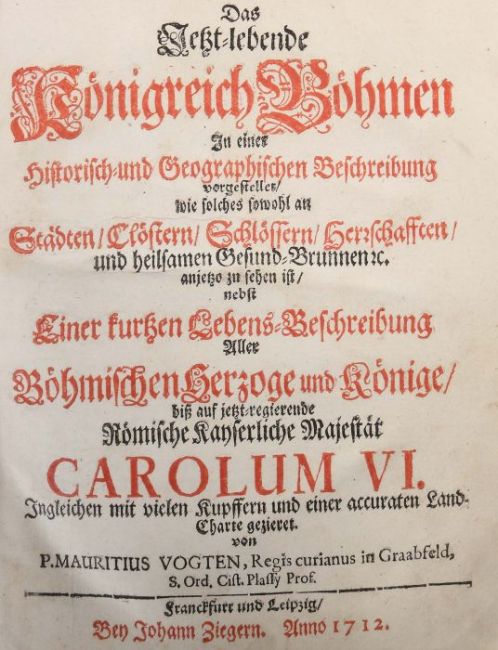 Das
Jetzt-lebende
Königreich Böhmen
In einer
Historisch- und Geographischen Beschreibung
vorgestellet/
wie solches sowohl an
Städten/ Clöstern/ Schlössern/ Herrschafften/
und heilsamen Gesund-Brunnen ꝛc.
anjetzo zu sehen ist/
nebst
Einer kurtzen Lebens-Beschreibung
Aller
Böhmischen Herzoge und Könige/
biß auf jetzt-regierende
Römische Kayserliche Majestät
CAROLUM VI.
Ingleichen mit vielen Kupffern und einer accuraten Land-
Charte gezieret.
von
P. MAURITIUS VOGTEN, Regis curianus in Graabfeld,
S. Ord, Cist. Plassy Prof.
Franckfurt und Leipzig/
Bey Johann Ziegern. Anno 1712.